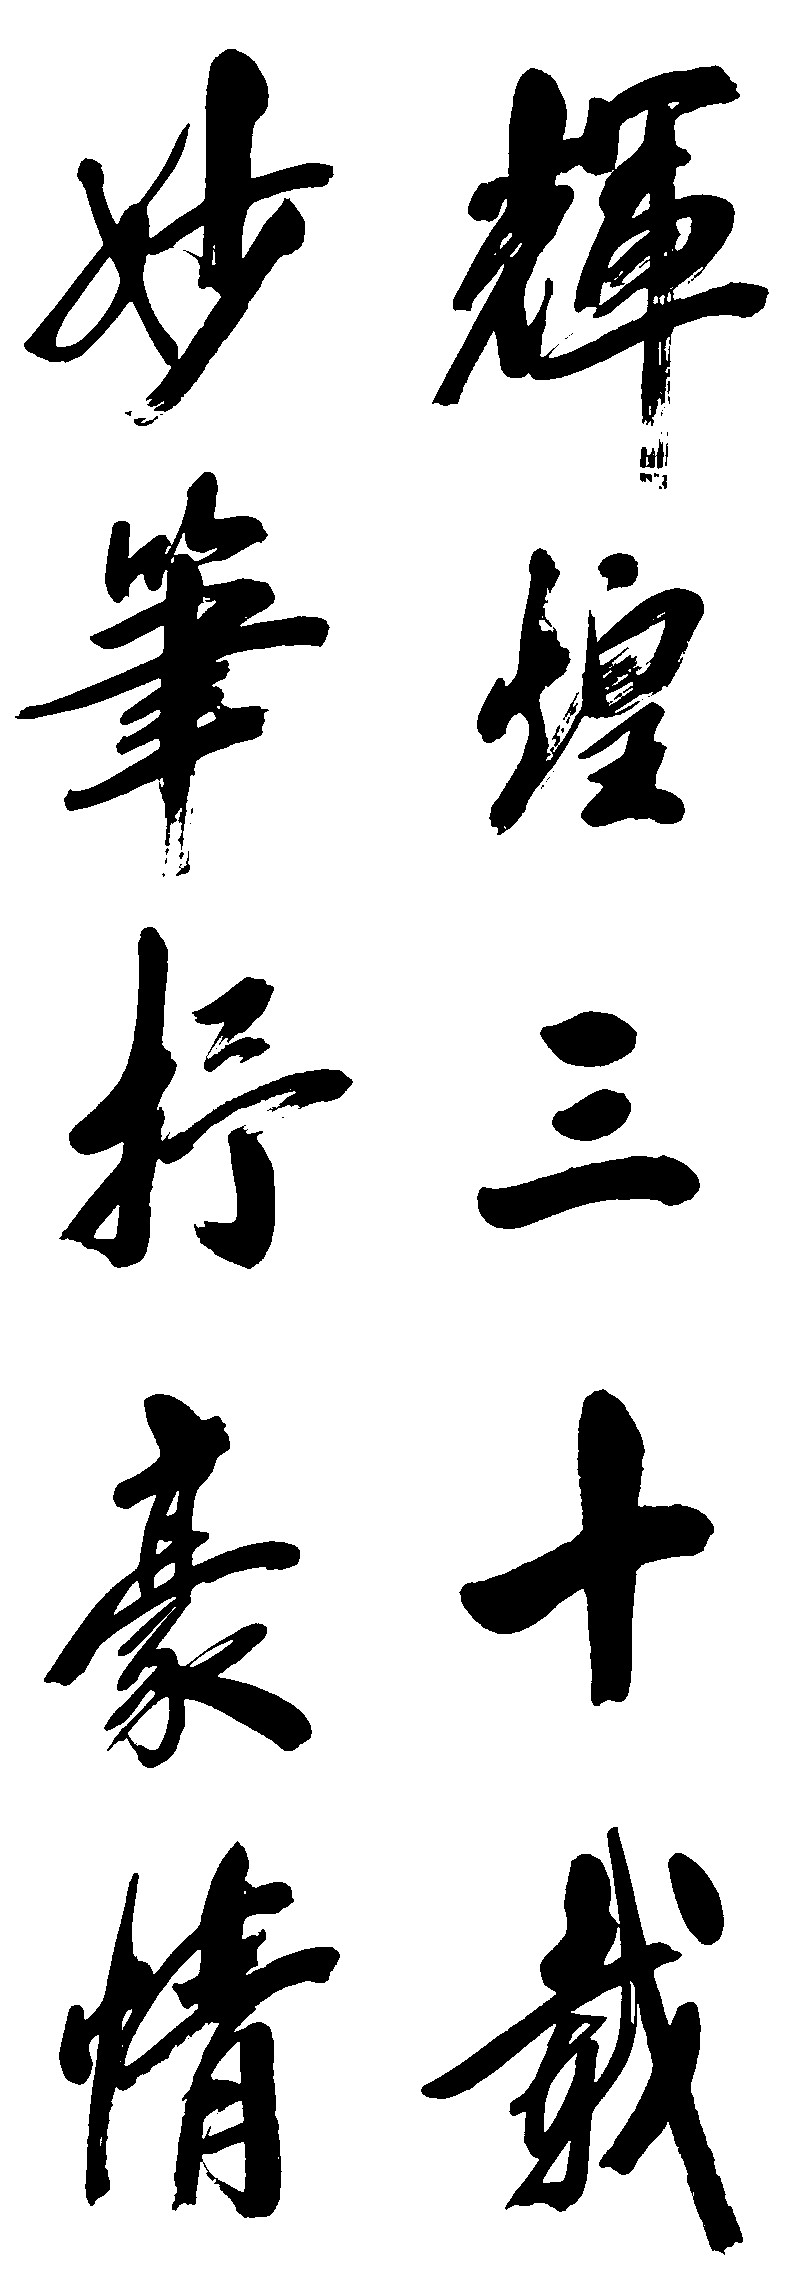 輝煌三十載
妙筆抒豪情